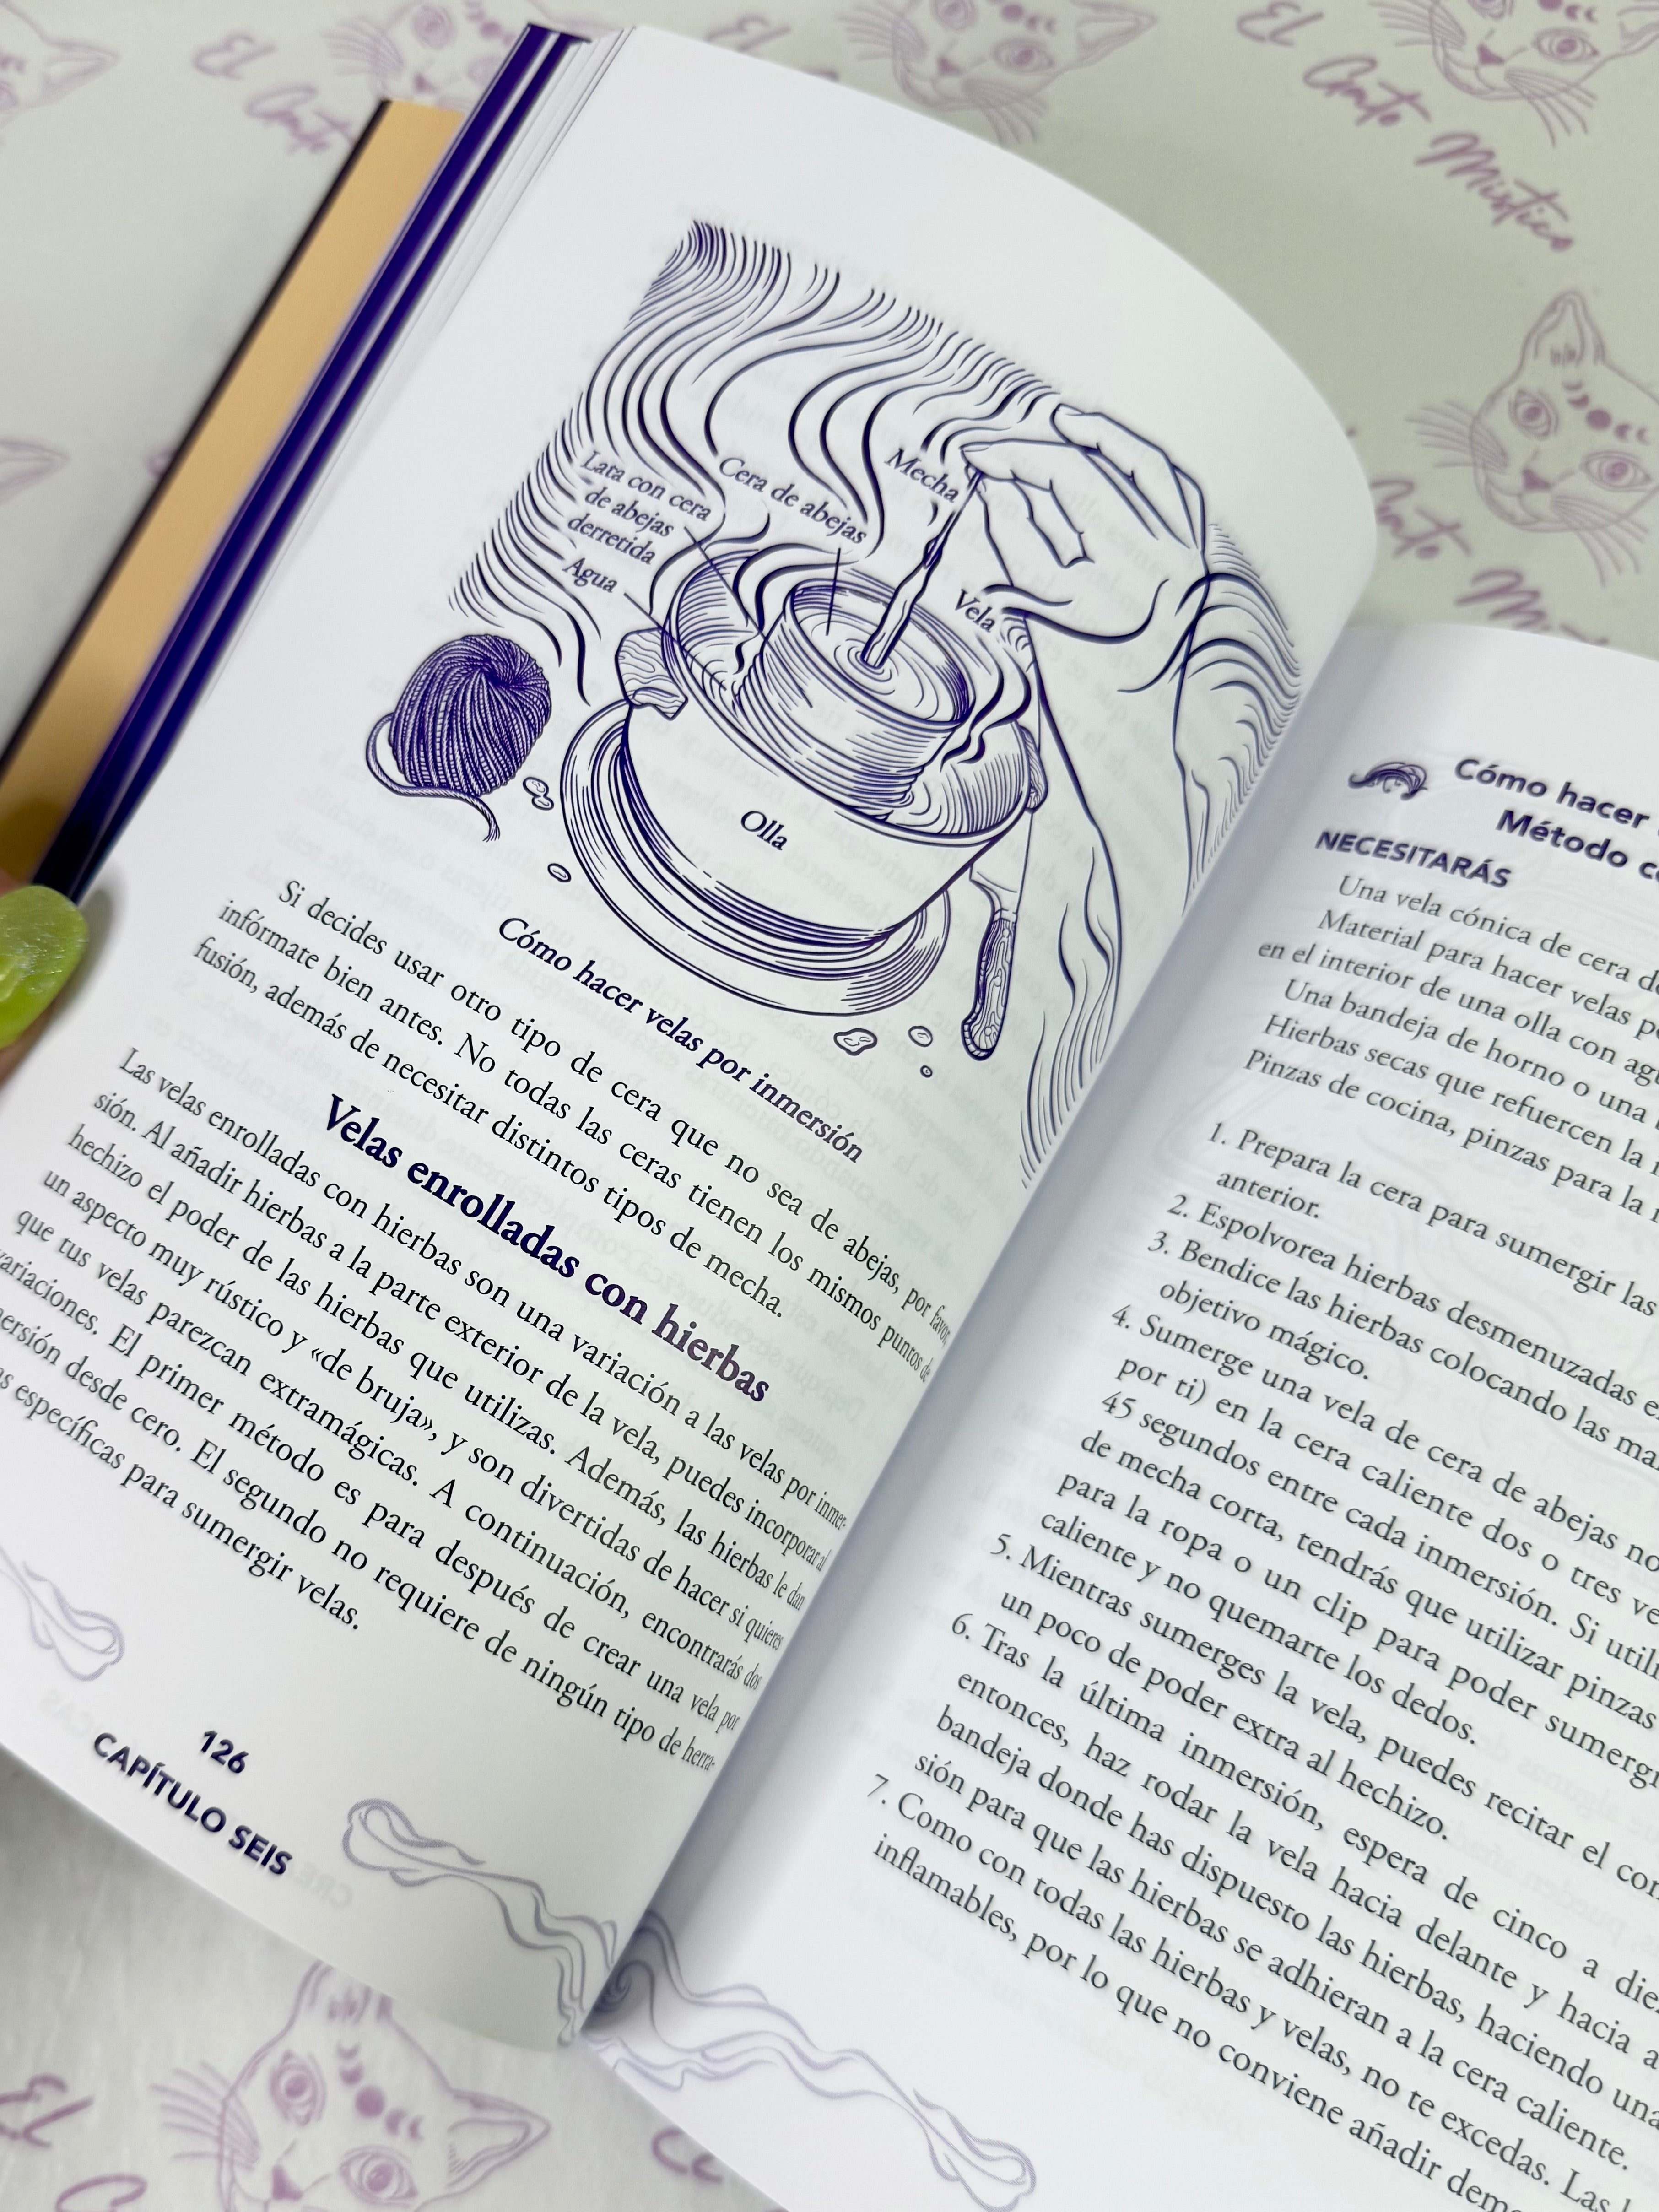 El Gato Místico
El Gato Místico
Lata con cera
de abejas
derretida
Agua
Cera de abejas
Mecha
Vela
Olla
Cómo hacer velas por inmersión
Si decides usar otro tipo de cera que no sea de abejas, por favor,
infórmate bien antes. No todas las ceras tienen los mismos puntos de
fusión, además de necesitar distintos tipos de mecha.
Velas enrolladas con hierbas
Las velas enrolladas con hierbas son una variación a las velas por inmer-
sión. Al añadir hierbas a la parte exterior de la vela, puedes incorporar al
hechizo el poder de las hierbas que utilizas. Además, las hierbas le dan
un aspecto muy rústico y «de bruja», y son divertidas de hacer si quieres
que tus velas parezcan extramágicas. A continuación, encontrarás dos
variaciones. El primer método es para después de crear una vela por
mersión desde cero. El segundo no requiere de ningún tipo de herra-
específicas para sumergir velas.
126
CAPÍTULO SEIS
Cómo hacer
Método
NECESITARÁS
Una vela cónica de cera
Material para hacer velas
en el interior de una olla con
Una bandeja de horno o una
Hierbas secas que refuercen la
Pinzas de cocina, pinzas para la
1. Prepara la cera para sumergir las
anterior.
2. Espolvorea hierbas desmenuzadas
3. Bendice las hierbas colocando las
objetivo mágico.
4. Sumerge una vela de cera de abejas
por ti) en la cera caliente dos o tres
45 segundos entre cada inmersión. Si
de mecha corta, tendrás que utilizar pinzas
para la ropa o un clip para poder
caliente y no quemarte los dedos.
5. Mientras sumerges la vela, puedes recitar el
un poco de poder extra al hechizo.
6. Tras la última inmersión, espera de cinco a
entonces, haz rodar la vela hacia delante y hacia
bandeja donde has dispuesto las hierbas, haciendo
sión para que las hierbas se adhieran a la cera caliente.
7. Como con todas las hierbas y velas, no te excedas. Las
inflamables, por lo que no conviene añadir